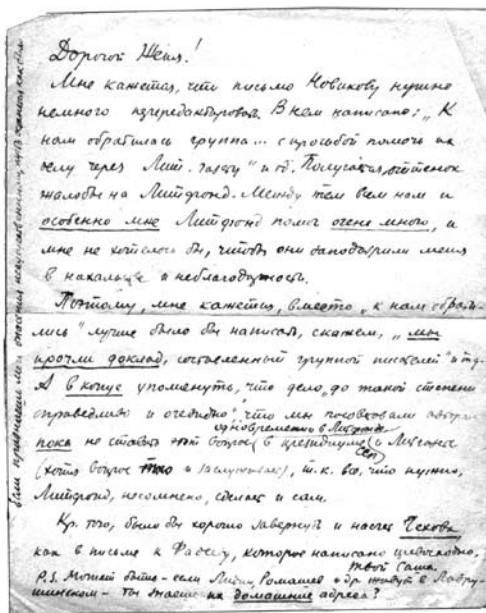 Дорогой Женя!
Мне кажется, что письмо Новикову нужно
немного отредактировать. В нем написано: „К
нам обратилась группа... с просьбой помочь их
делу через Лит. газету" и т.д. Получается оттенок
жалобы на Литфонд. Между тем всем нам и
особенно мне Литфонд помог очень много, и
мне не хотелось бы, чтобы они заподозрили меня
в нахальстве и неблагодарности.
Поэтому, мне кажется, вместо „к нам обрати-
лись" лучше было бы написать, скажем, „мы
прочли доклад, составленный группой писателей" и т.д.
А в конце упомянуть, что дело „до такой степени
справедливо и очевидно", что мы посоветовали авторам
одновременно в Литфонде
пока не ставить этот вопрос в президиуме и
(хотя вопрос того и заслуживает), т.к. все, что нужно,
Литфонд, несомненно, сделает и сам.
Кр. того, было бы хорошо завернуть и насчет Чехова
как в письме к Фадееву, которое написано превосходно.
твой Саша.
P.S. Может быть – если Лидин, Ромашев и др. живут в Лавру-
шинском – ты знаешь их домашние адреса?